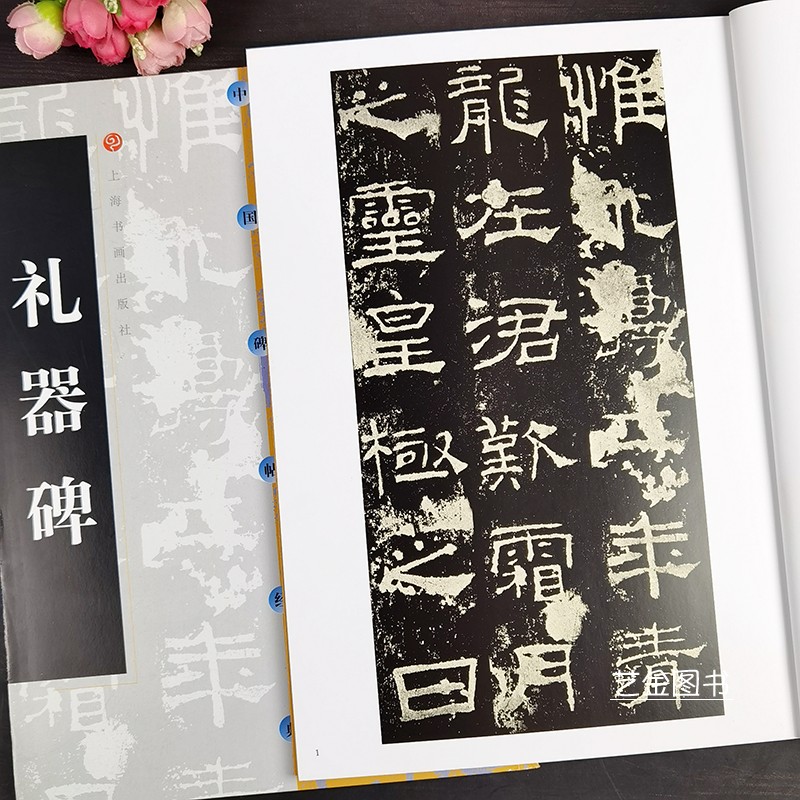 礼器碑
上海书画出版社
中国碑帖经典
惟永壽二年青
龍在涒歎霜月
之靈皇極之日
1
艺金图书